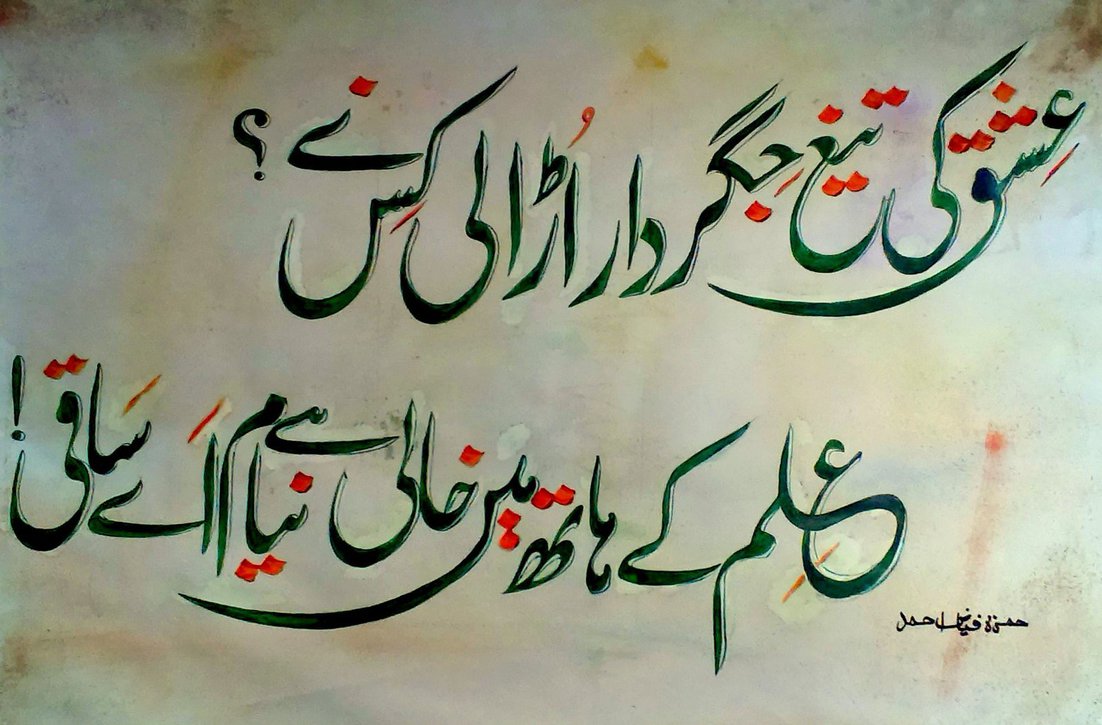 عِشق کی تیغِ جِگر دار اُڑا لی کِس نے؟
عِلم کے ہاتھ میں خالی ہے نیام اے ساقی!
حمزہ فیاض احمد